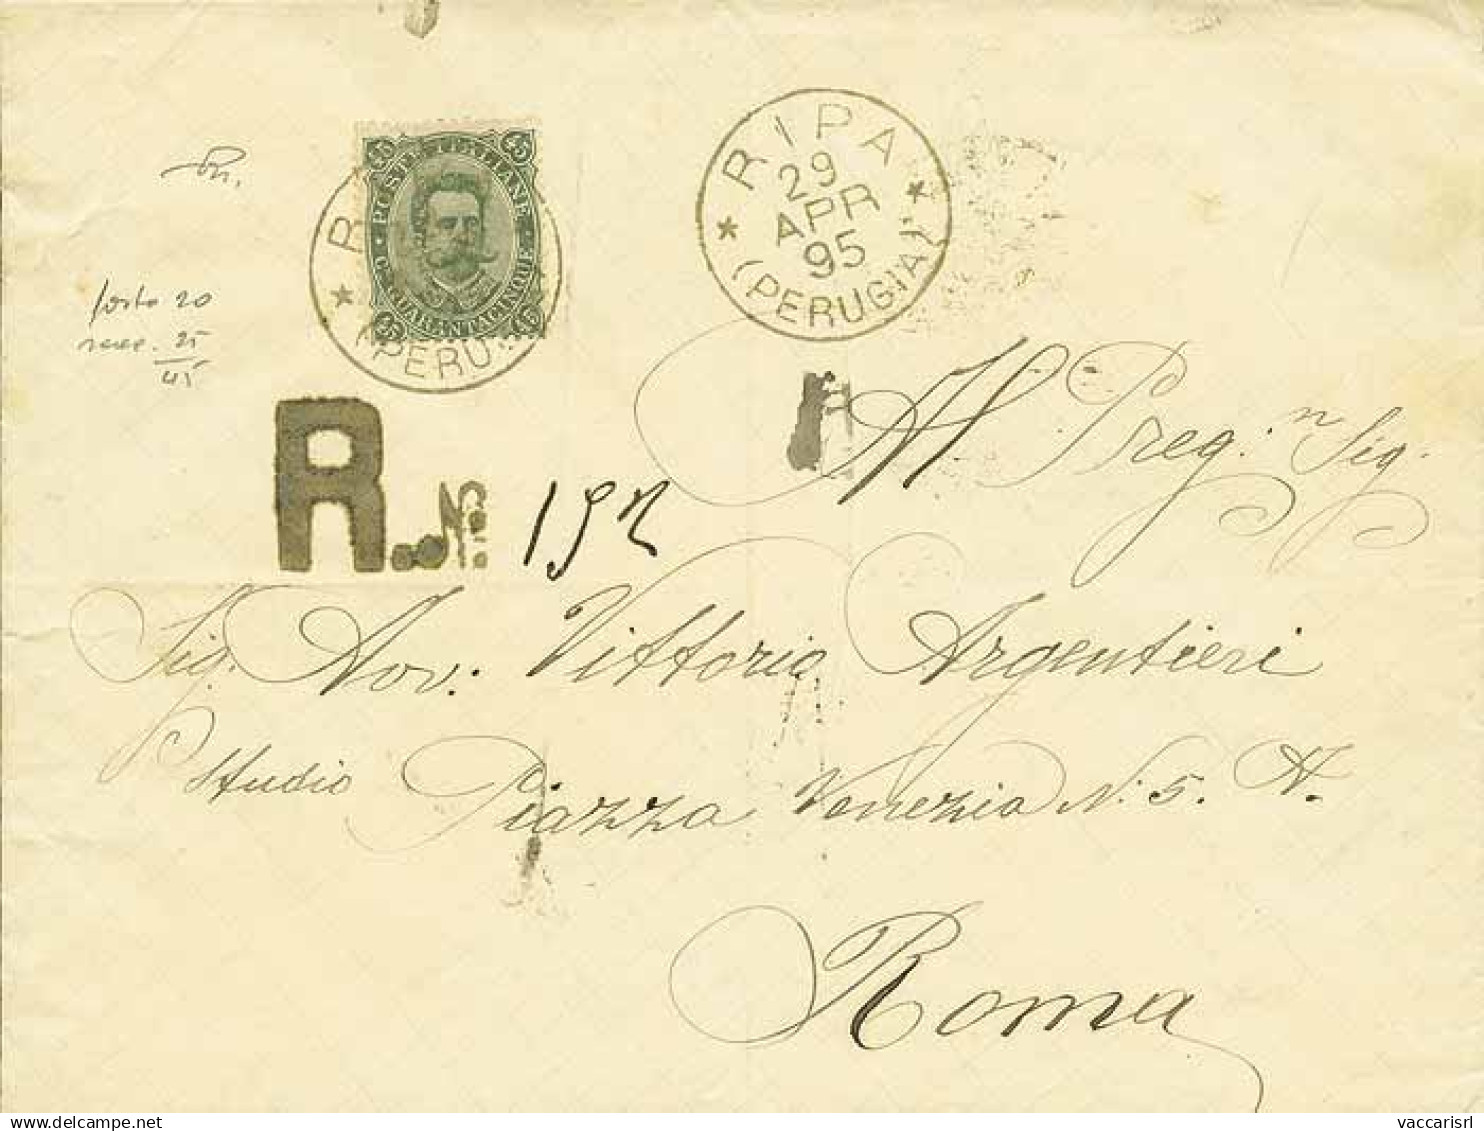 45 POSTE ITALIANE 45
C. QUARANTACINQUE
45 45
R
(PERU
RIPA
29
APR
95
(PERUGIA)
porto 20
racc. 25
45
R. No.
192
Al Preg.n Sig.
Sig. Avv. Vittorio Argentieri
Studio Piazza Venezia N. 5. A.
Roma
delcampe.net
vaccarisrl